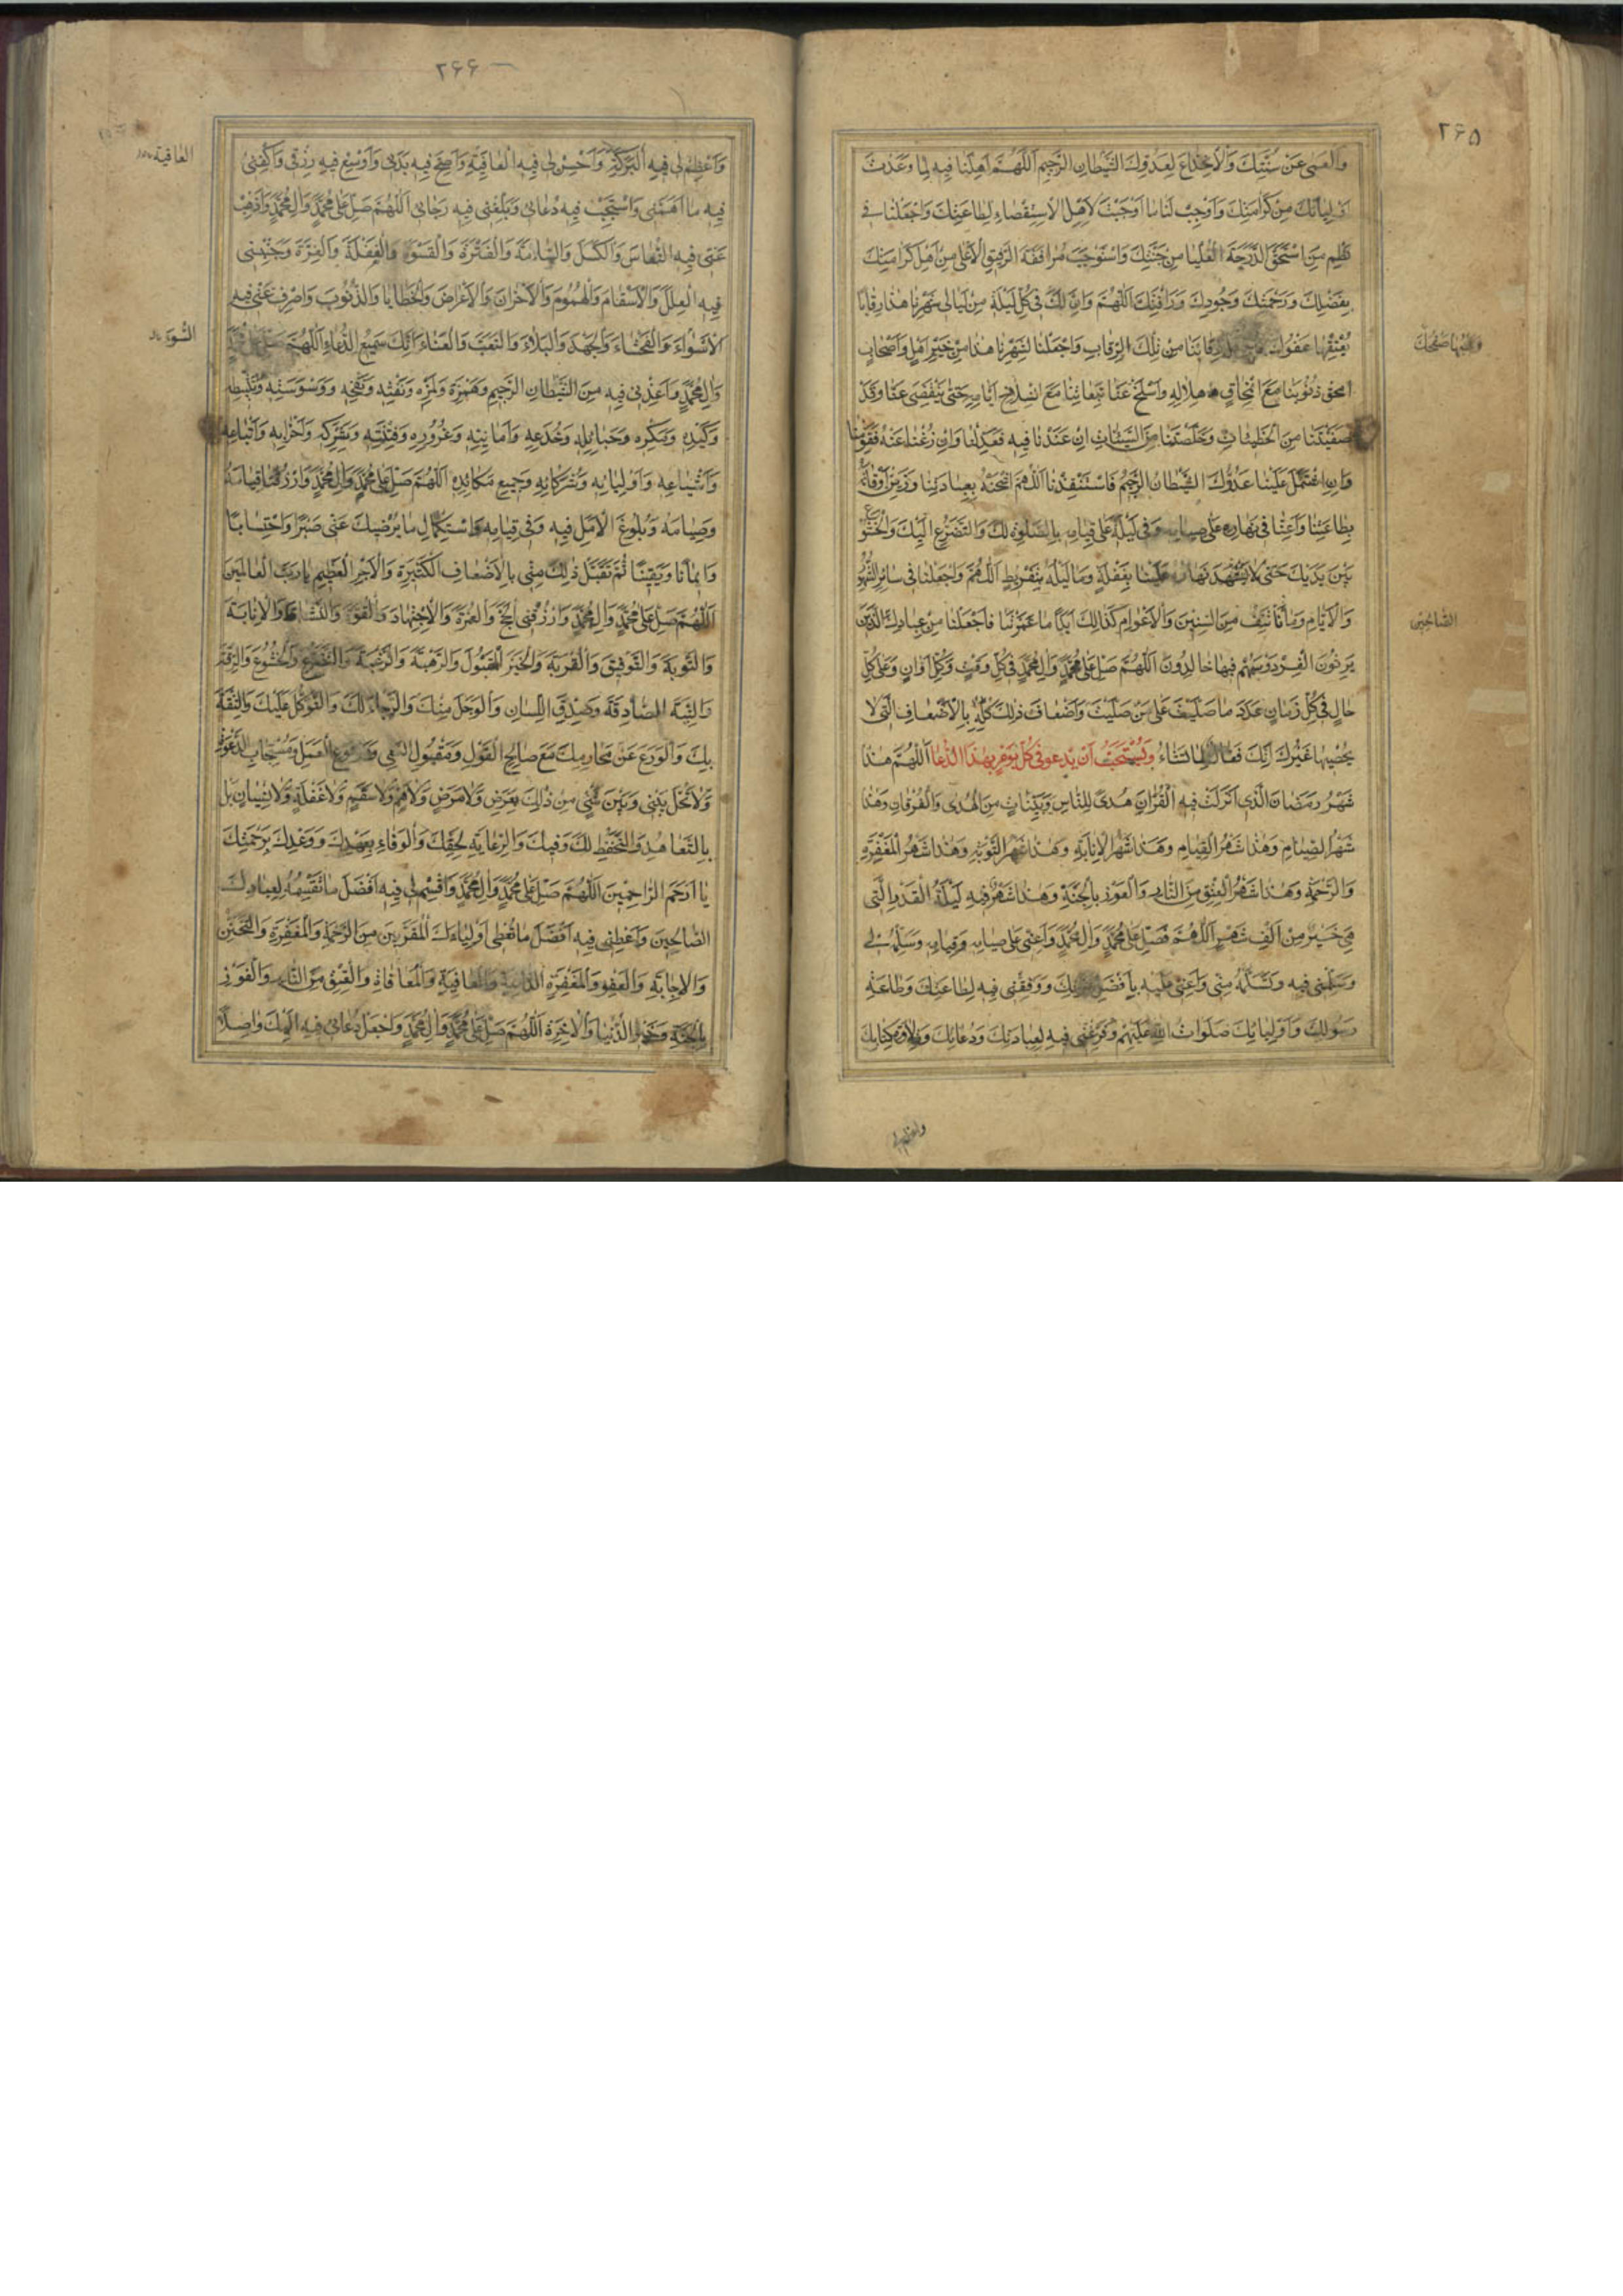 ۲۶۵
وَالْعَمىٰ عَنْ سُنَّتِكَ وَالْاِنْخِداعَ لِعَدُوِّكَ الشَّيْطانِ الرَّجيمِ اَللّٰهُمَّ اَهِّلْنا فيهِ لِما وَعَدْتَ
اَوْلِيائَكَ مِنْ كَرامَتِكَ وَاَوْجِبْ لَنا ما اَوْجَبْتَ لِاَهْلِ الْاِسْتِقْصاءِ لِطاعَتِكَ وَاجْعَلْنا في
نَظْمِ مَنِ اسْتَحَقَّ الدَّرَجَةَ الْعُلْيا مِنْ جَنَّتِكَ وَاسْتَوْجَبَ مُرافَقَةَ الرَّفيقِ الْاَعْلىٰ مِنْ اَهْلِ كَرامَتِكَ
بِفَضْلِكَ وَرَحْمَتِكَ وَجُودِكَ وَرَأْفَتِكَ اَللّٰهُمَّ وَاِنَّ لَكَ في كُلِّ لَيْلَةٍ مِنْ لَيالي شَهْرِنا هٰذا رِقابًا
يُعْتِقُها عَفْوُكَ رِقابَنا مِنْ تِلْكَ الرِّقابِ وَاجْعَلْنا لِشَهْرِنا هٰذا مِنْ خَيْرِ اَهْلٍ وَاَصْحابٍ
وَيَهَبُها صَفْحُكَ
امحق ذُنُوبَنا مَعَ امِّحاقِ هِلالِهِ وَاسْلَخْ عَنّا تَبِعاتِنا مَعَ انْسِلاخِ اَيّامِهِ حَتّىٰ يَنْقَضِيَ عَنّا وَقَدْ
صَفَّيْتَنا مِنَ الْخَطيئاتِ وَخَلَّصْتَنا مِنَ السَّيِّئاتِ اِنْ عَنَدْنا فيهِ فَعَدِّلْنا وَاِنْ زُغْنا عَنْهُ فَقَوِّمْنا
وَاِنِ اشْتَمَلَ عَلَيْنا عَدُوُّكَ الشَّيْطانُ الرَّجيمُ فَاسْتَنْقِذْنا اَللّٰهُمَّ اشْحَنْهُ بِعِبادَتِنا وَزَيِّنْ اَوْقاتَهُ
بِطاعَتِنا وَاَعِنّا في نَهارِهِ عَلىٰ صِيامِهِ وَفي لَيْلِهِ عَلىٰ قِيامِهِ بِالصَّلوةِ لَكَ وَالتَّضَرُّعِ اِلَيْكَ وَالْخُشُوعِ
بَيْنَ يَدَيْكَ حَتّىٰ لا يَشْهَدَ نَهارُهُ عَلَيْنا بِغَفْلَةٍ وَما لَيْلُهُ بِتَفْريطٍ اَللّٰهُمَّ وَاجْعَلْنا في سائِرِ الشُّهُورِ
وَالْاَيّامِ وَمانَأْتَنِفُ مِنَ السِّنينَ وَالْاَعْوامِ كَذٰلِكَ اَبَدًا ما عَمَّرْتَنا فَاجْعَلْنا مِنْ عِبادِكَ الَّذينَ
الصّالِحينَ
يَرِثُونَ الْفِرْدَوْسَ هُمْ فيها خالِدُونَ اَللّٰهُمَّ صَلِّ عَلىٰ مُحَمَّدٍ وَاٰلِ مُحَمَّدٍ في كُلِّ وَقْتٍ وَكُلِّ اَوانٍ وَعَلىٰ كُلِّ
حالٍ في كُلِّ زَمانٍ عَدَدَ ما صَلَّيْتَ عَلىٰ مَنْ صَلَّيْتَ وَاَضْعافَ ذٰلِكَ كُلِّهِ بِالْاَضْعافِ الَّتي لا
يُحْصيها غَيْرُكَ اِنَّكَ فَعّالٌ لِما تَشاءُ وَيُسْتَحَبُّ اَنْ يَدْعو في كُلِّ يَوْمٍ بِهٰذَا الدُّعا اَللّٰهُمَّ هٰذا
شَهْرُ رَمَضانَ الَّذي اَنْزَلْتَ فيهِ الْقُرْاٰنَ هُدًى لِلنّاسِ وَبَيِّناتٍ مِنَ الْهُدىٰ وَالْفُرْقانِ وَهٰذا
شَهْرُ الصِّيامِ وَهٰذا شَهْرُ الْقِيامِ وَهٰذا شَهْرُ الْاِنابَةِ وَهٰذا شَهْرُ التَّوْبَةِ وَهٰذا شَهْرُ الْمَغْفِرَةِ
وَالرَّحْمَةِ وَهٰذا شَهْرُ الْعِتْقِ مِنَ النّارِ وَالْفَوْزِ بِالْجَنَّةِ وَهٰذا شَهْرٌ فيهِ لَيْلَةُ الْقَدْرِ الَّتي
هِيَ خَيْرٌ مِنْ اَلْفِ شَهْرٍ اَللّٰهُمَّ فَصَلِّ عَلىٰ مُحَمَّدٍ وَاٰلِ مُحَمَّدٍ وَاَعِنّي عَلىٰ صِيامِهِ وَقِيامِهِ وَسَلِّمْهُ لي
وَسَلِّمْني فيهِ وَتَسَلَّمْهُ مِنّي وَاَعِنّي عَلَيْهِ بِاَفْضَلِ عَوْنِكَ وَوَفِّقْني فيهِ لِطاعَتِكَ وَطاعَةِ
رَسُولِكَ وَاَوْلِيائِكَ صَلَواتُ اللّٰهِ عَلَيْهِمْ وَفَرِّغْني فيهِ لِعِبادَتِكَ وَدُعائِكَ وَتِلاوَةِ كِتابِكَ
واعظم لي
۲۶۶
وَاَعْظِمْ لي فيهِ الْبَرَكَةَ وَاَحْسِنْ لي فيهِ الْعاقِبَةَ وَاَصِحَّ فيهِ بَدَني وَاَوْسِعْ فيهِ رِزْقي وَاكْفِني
العافية
فيهِ ما اَهَمَّني وَاسْتَجِبْ فيهِ دُعائي وَبَلِّغْني فيهِ رَجائي اَللّٰهُمَّ صَلِّ عَلىٰ مُحَمَّدٍ وَاٰلِ مُحَمَّدٍ وَاَذْهِبْ
عَنّي فيهِ النُّعاسَ وَالْكَسَلَ وَالسَّاْمَةَ وَالْفَتْرَةَ وَالْقَسْوَةَ وَالْغَفْلَةَ وَالْغِرَّةَ وَجَنِّبْني
فيهِ الْعِلَلَ وَالْاَسْقامَ وَالْهُمُومَ وَالْاَحْزانَ وَالْاَعْراضَ وَالْخَطايا وَالذُّنُوبَ وَاصْرِفْ عَنّي فيهِ
الْاَسْواءَ وَالْفَحْشاءَ وَالْجَهْدَ وَالْبَلاءَ وَالتَّعَبَ وَالْعَناءَ اِنَّكَ سَميعُ الدُّعاءِ اَللّٰهُمَّ صَلِّ عَلىٰ مُحَمَّدٍ
السُّوءَ
وَاٰلِ مُحَمَّدٍ وَاَعِذْني فيهِ مِنَ الشَّيْطانِ الرَّجيمِ وَهَمْزِهِ وَلَمْزِهِ وَنَفْثِهِ وَنَفْخِهِ وَوَسْوَسَتِهِ وَتَثْبيطِهِ
وَكَيْدِهِ وَمَكْرِهِ وَحَبائِلِهِ وَخُدَعِهِ وَاَمانِيِّهِ وَغُرُورِهِ وَفِتْنَتِهِ وَشَرَكِهِ وَاَحْزابِهِ وَاَتْباعِهِ
وَاَشْياعِهِ وَاَوْلِيائِهِ وَشُرَكائِهِ وَجَميعِ مَكائِدِهِ اَللّٰهُمَّ صَلِّ عَلىٰ مُحَمَّدٍ وَاٰلِ مُحَمَّدٍ وَارْزُقْنا قِيامَهُ
وَصِيامَهُ وَبُلُوغَ الْاَمَلِ فيهِ وَفي قِيامِهِ وَاسْتِكْمالِ ما يُرْضيكَ عَنّي صَبْرًا وَاحْتِسابًا
وَايمانًا وَيَقينًا ثُمَّ تَقَبَّلْ ذٰلِكَ مِنّي بِالْاَضْعافِ الْكَثيرَةِ وَالْاَجْرِ الْعَظيمِ يا رَبَّ الْعالَمينَ
اَللّٰهُمَّ صَلِّ عَلىٰ مُحَمَّدٍ وَاٰلِ مُحَمَّدٍ وَارْزُقْني الْحَجَّ وَالْعُمْرَةَ وَالْاِجْتِهادَ وَالْقُوَّةَ وَالنَّشاطَ وَالْاِنابَةَ
وَالتَّوْبَةَ وَالتَّوْفيقَ وَالْقُرْبَةَ وَالْخَيْرَ الْمَقْبُولَ وَالرَّهْبَةَ وَالرَّغْبَةَ وَالتَّضَرُّعَ وَالْخُشُوعَ وَالرِّقَّةَ
وَالنِّيَّةَ الصّادِقَةَ وَصِدْقَ اللِّسانِ وَالْوَجَلَ مِنْكَ وَالرَّجاءَ لَكَ وَالتَّوَكُّلَ عَلَيْكَ وَالثِّقَةَ
بِكَ وَالْوَرَعَ عَنْ مَحارِمِكَ مَعَ صالِحِ الْقَوْلِ وَمَقْبُولِ السَّعْيِ وَمَرْفُوعِ الْعَمَلِ وَمُسْتَجابِ الدَّعْوَةِ
وَلا تَحُلْ بَيْني وَبَيْنَ شَيْءٍ مِنْ ذٰلِكَ بِعَرَضٍ وَلا مَرَضٍ وَلا هَمٍّ وَلا سُقْمٍ وَلا غَفْلَةٍ وَلا نِسْيانٍ بَلْ
بِالتَّعاهُدِ وَالتَّحَفُّظِ لَكَ وَفيكَ وَالرِّعايَةِ لِحَقِّكَ وَالْوَفاءِ بِعَهْدِكَ وَوَعْدِكَ بِرَحْمَتِكَ
يا اَرْحَمَ الرّاحِمينَ اَللّٰهُمَّ صَلِّ عَلىٰ مُحَمَّدٍ وَاٰلِ مُحَمَّدٍ وَاقْسِمْ لي فيهِ اَفْضَلَ ما تَقْسِمُهُ لِعِبادِكَ
الصّالِحينَ وَاَعْطِني فيهِ اَفْضَلَ ما تُعْطي اَوْلِياءَكَ الْمُقَرَّبينَ مِنَ الرَّحْمَةِ وَالْمَغْفِرَةِ وَالتَّحَنُّنِ
وَالْاِجابَةِ وَالْعَفْوِ وَالْمَغْفِرَةِ الدّائِمَةِ وَالْعافِيَةِ وَالْمُعافاةِ وَالْعِتْقِ مِنَ النّارِ وَالْفَوْزِ
بِالْجَنَّةِ وَخَيْرِ الدُّنْيا وَالْاٰخِرَةِ اَللّٰهُمَّ صَلِّ عَلىٰ مُحَمَّدٍ وَاٰلِ مُحَمَّدٍ وَاجْعَلْ دُعائي فيهِ اِلَيْكَ واصِلًا